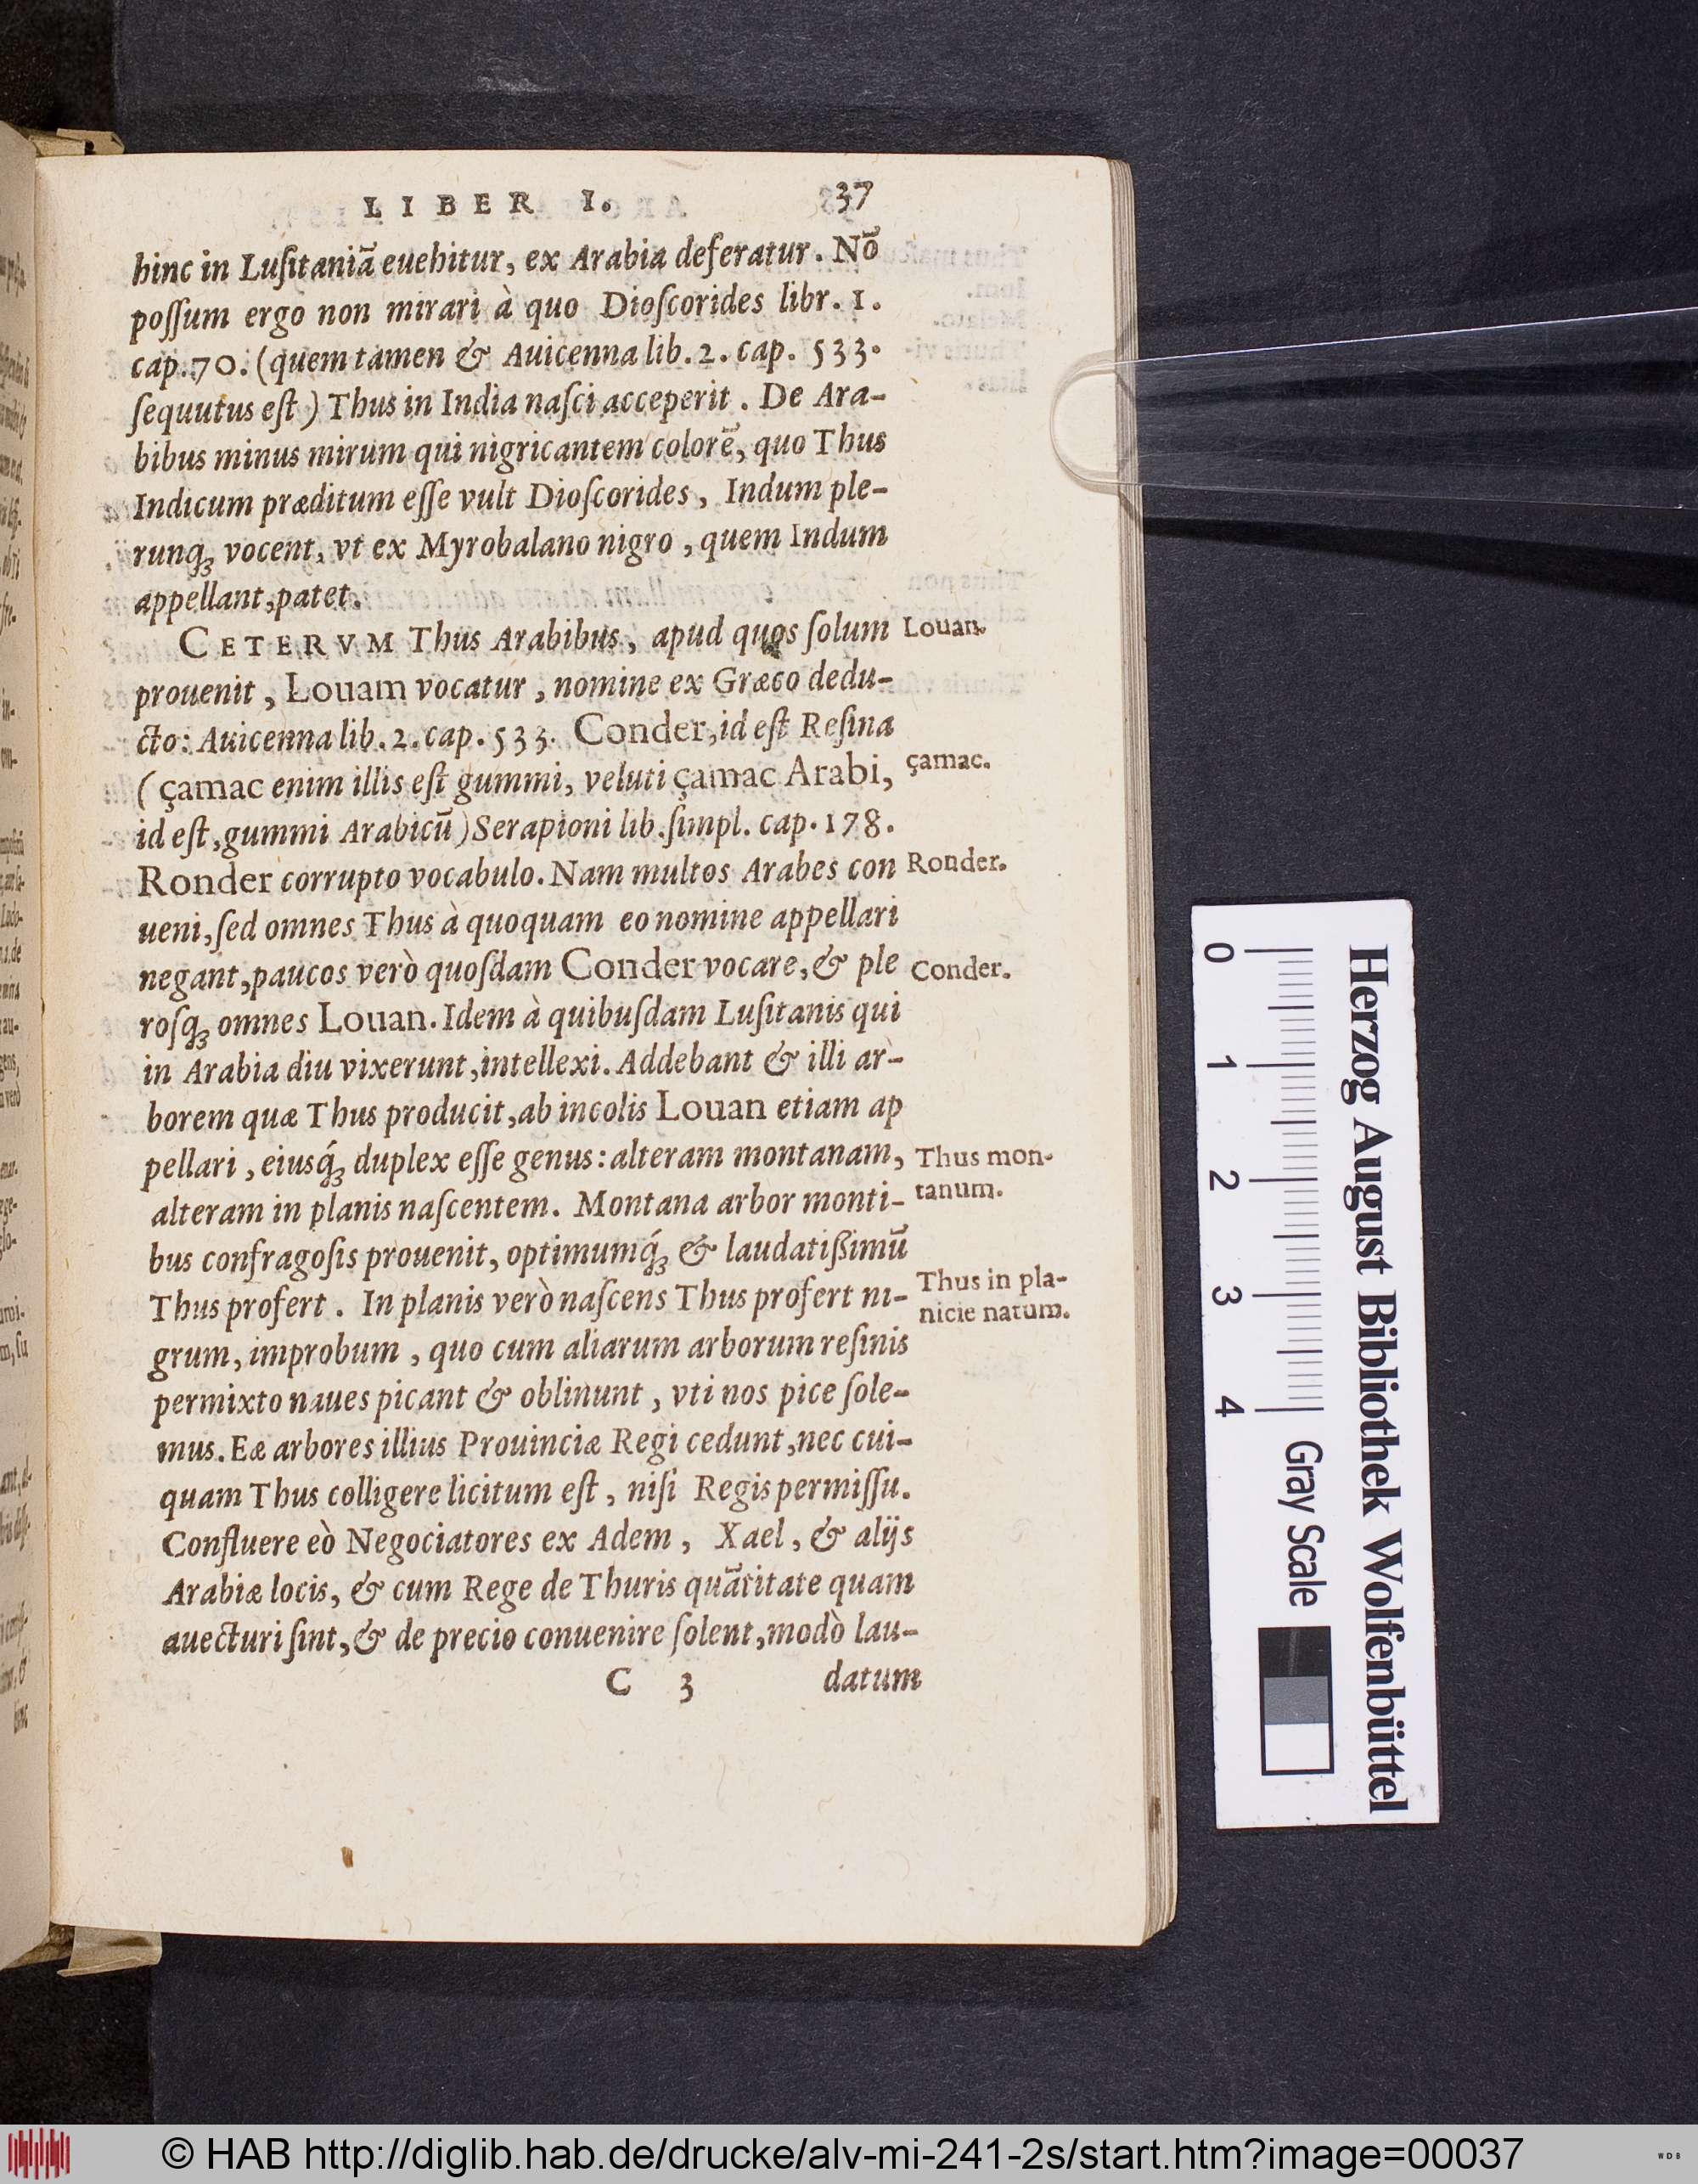 LIBER I. 37
hinc in Luſitaniā euehitur, ex Arabia deferatur. Nō
poſſum ergo non mirari à quo Dioſcorides libr. 1.
cap. 70. (quem tamen & Auicenna lib. 2. cap. 533.
ſequutus eſt) Thus in India naſci acceperit. De Ara-
bibus minus mirum qui nigricantem colorē, quo Thus
Indicum præditum eſſe vult Dioſcorides, Indum ple-
runqꝫ vocent, vt ex Myrobalano nigro, quem Indum
appellant, patet.
CETERVM Thus Arabibus, apud quos ſolum
Louan.
prouenit, Louam vocatur, nomine ex Græco dedu-
cto: Auicenna lib. 2. cap. 533. Conder, id eſt Reſina
(çamac enim illis eſt gummi, veluti çamac Arabi,
çamac.
id eſt, gummi Arabicū) Serapioni lib. ſimpl. cap. 178.
Ronder corrupto vocabulo. Nam multos Arabes con
Ronder.
ueni, ſed omnes Thus à quoquam eo nomine appellari
negant, paucos verò quoſdam Conder vocare, & ple
Conder.
roſqꝫ omnes Louan. Idem à quibuſdam Luſitanis qui
in Arabia diu vixerunt, intellexi. Addebant & illi ar-
borem quæ Thus producit, ab incolis Louan etiam ap
pellari, eiusq́ꝫ duplex eſſe genus: alteram montanam,
Thus mon-
alteram in planis naſcentem. Montana arbor monti-
tanum.
bus confragoſis prouenit, optimumq́ꝫ & laudatißimū
Thus profert. In planis verò naſcens Thus profert ni-
Thus in pla-
nicie natum.
grum, improbum, quo cum aliarum arborum reſinis
permixto naues picant & oblinunt, vti nos pice ſole-
mus. Eæ arbores illius Prouinciæ Regi cedunt, nec cui-
quam Thus colligere licitum eſt, niſi Regis permiſſu.
Confluere eò Negociatores ex Adem, Xael, & alijs
Arabiæ locis, & cum Rege de Thuris quātitate quam
auecturi ſint, & de precio conuenire ſolent, modò lau-
C 3 datum
Herzog August Bibliothek Wolfenbüttel
0 1 2 3 4 Gray Scale
© HAB http://diglib.hab.de/drucke/alv-mi-241-2s/start.htm?image=00037
WDB